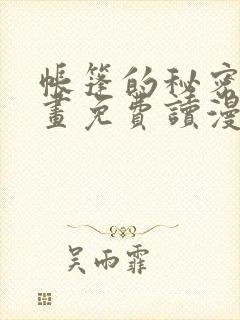 帳篷的秘密
畫免費讀漫
吳雨霏